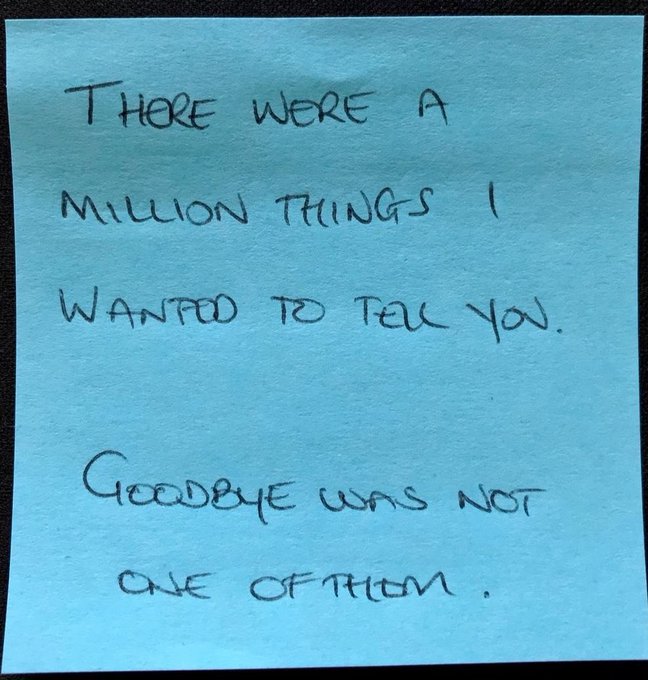 THERE WERE A
MILLION THINGS I
WANTED TO TELL YOU.
GOODBYE WAS NOT
ONE OF THEM.